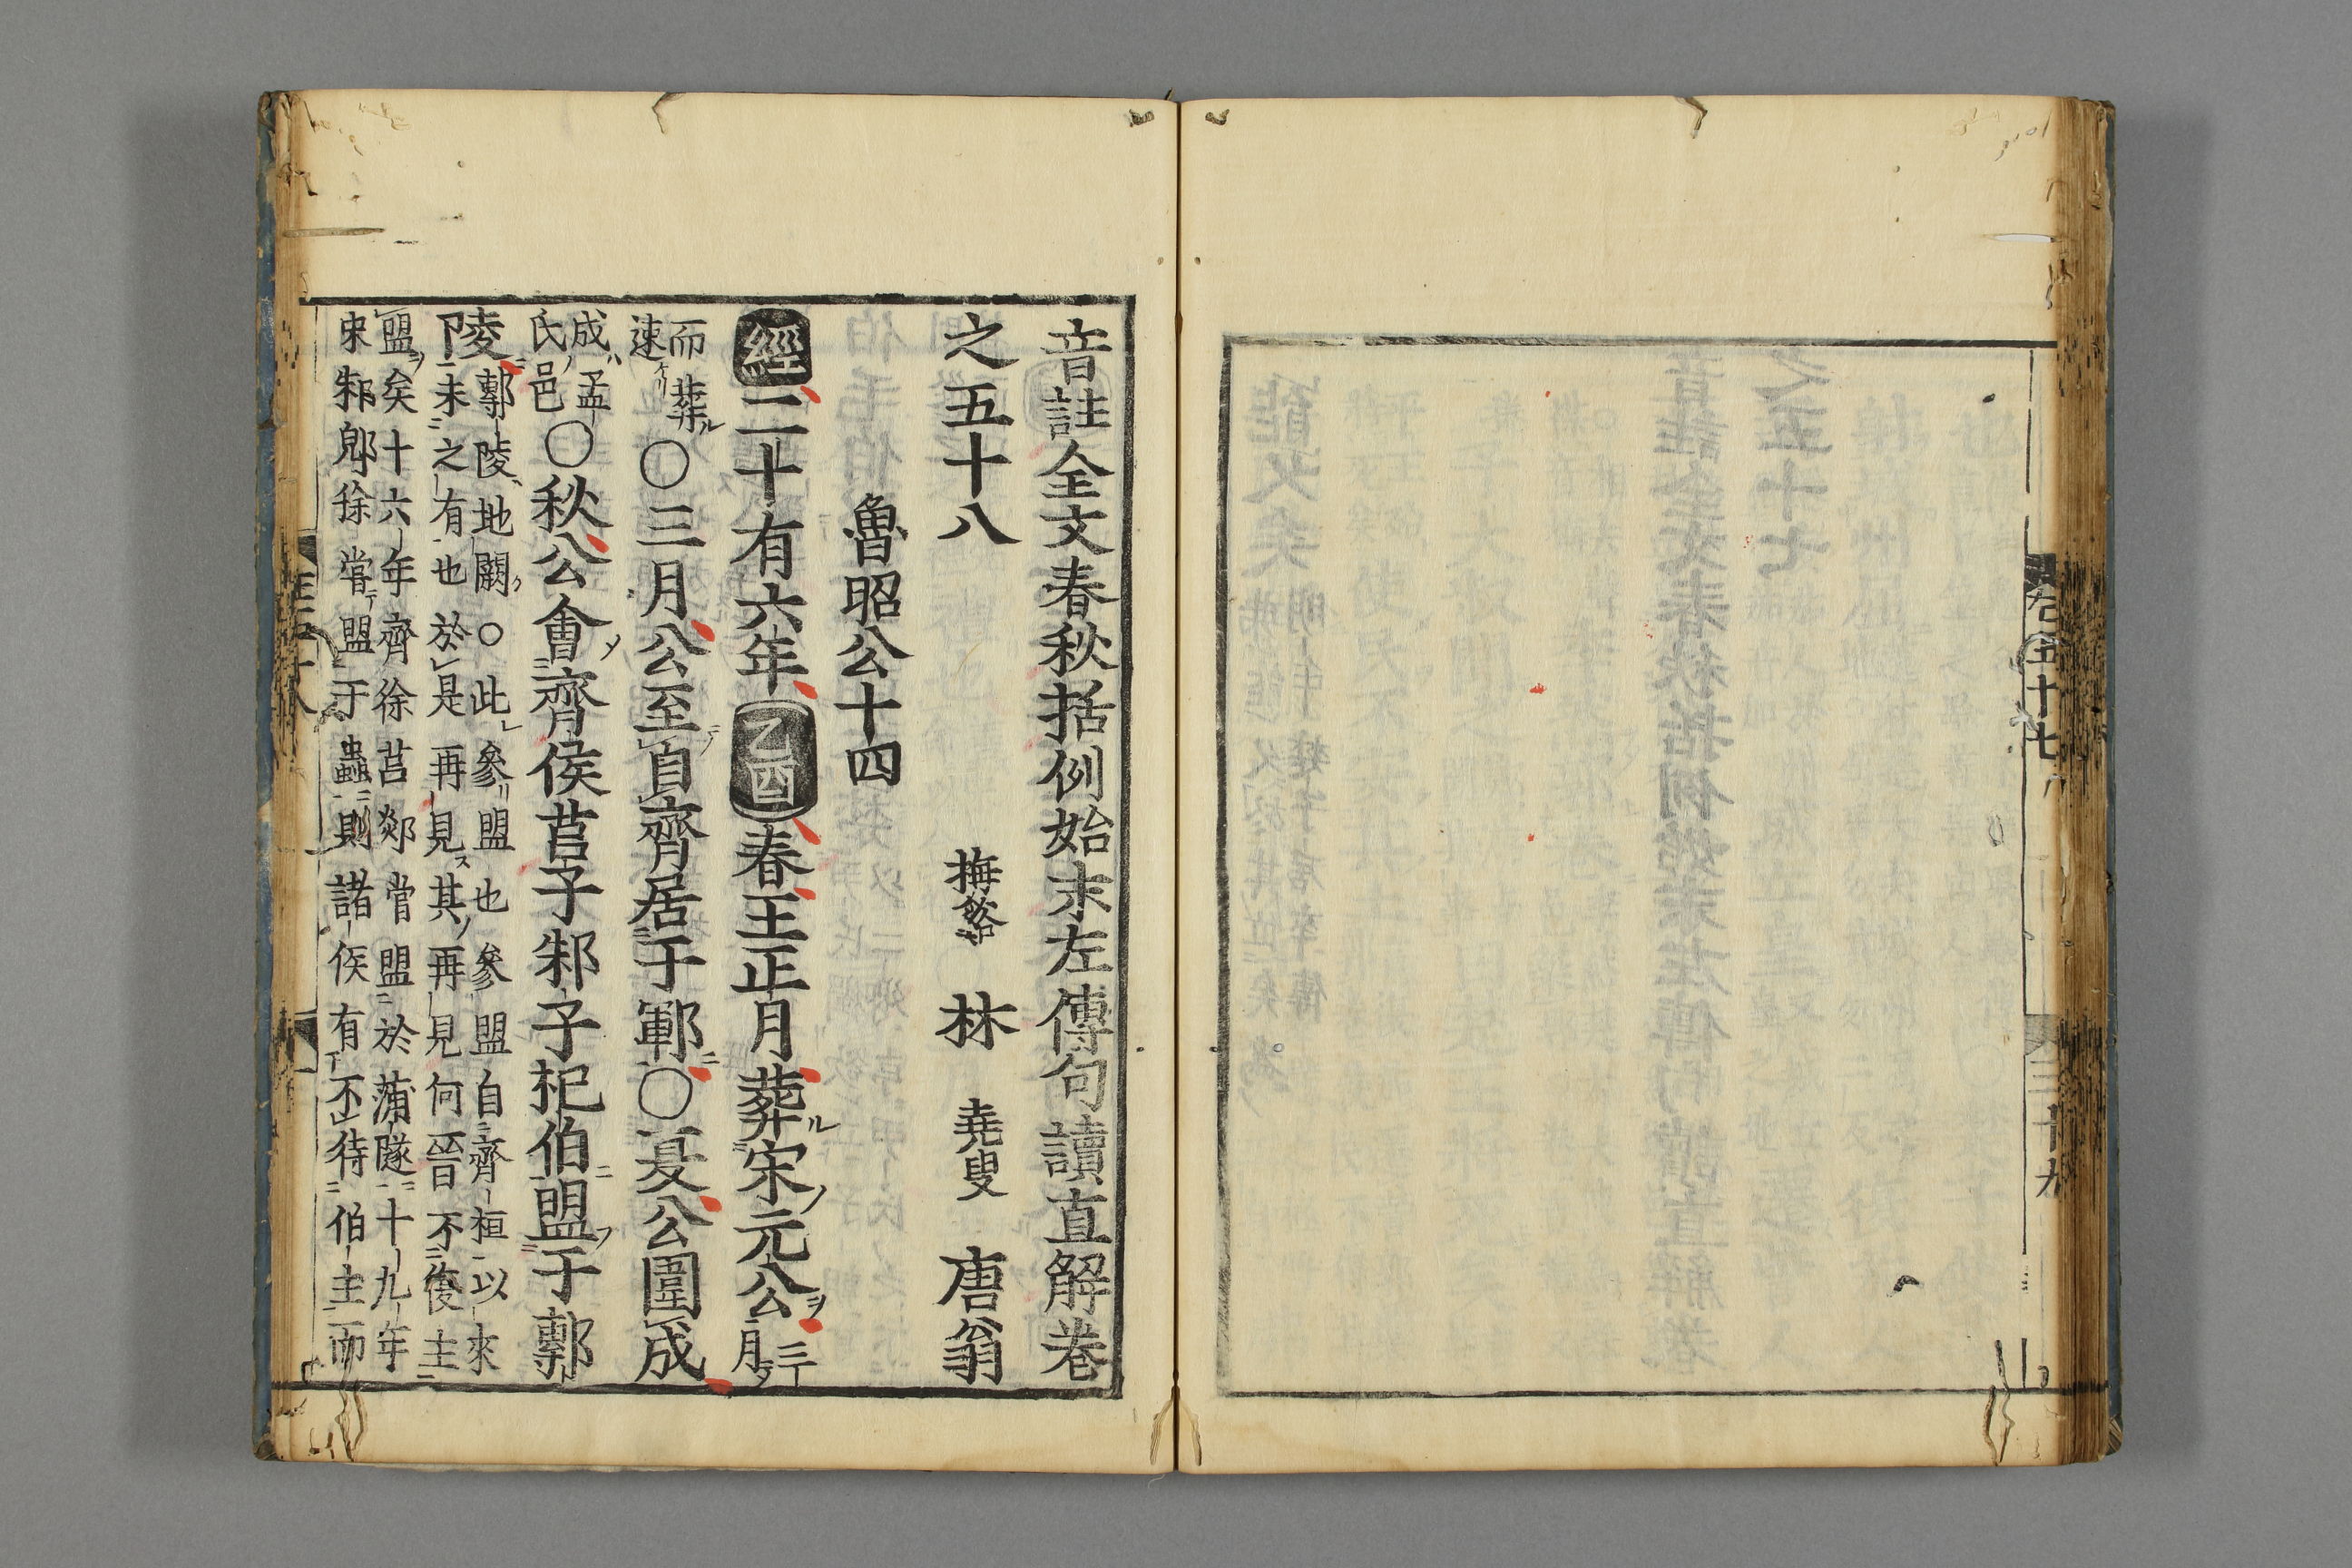 音註全文春秋括例始末左傳句讀直解卷
之五十八 梅谿 林 堯叟 唐翁
魯昭公十四
經二十有六年乙酉春王正月葬宋元公三月
而葬速〇三月公至自齊居于鄆〇夏公圍成
成孟氏邑〇秋公會齊侯莒子邾子杞伯盟于鄟
陵鄟陵地闕〇此參盟也參盟自齊桓以來
未之有也於是再見其再見何晉不復主
盟矣十六年齊徐莒郯嘗盟於蒲隧十九年
宋邾郳徐嘗盟于蟲則諸侯有不待伯主而
卷五十七
三十九